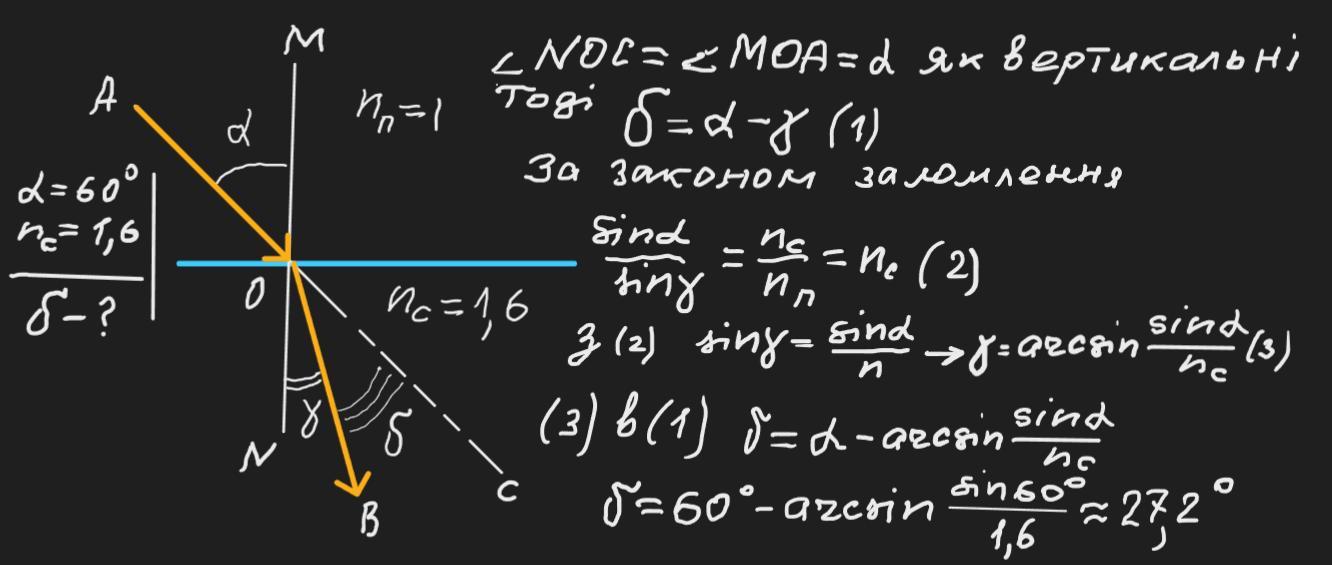 M
A
α
nп=1
α=60°
nс=1,6
δ-?
O
nс=1,6
γ
δ
N
B
C
∠NOC=∠MOA=α як вертикальні
Тоді δ=α-γ (1)
За законом заломлення
sinα/sinγ = nс/nп = nс (2)
З (2) sinγ = sinα/n → γ=arcsin sinα/nс (3)
(3) в (1) δ=α-arcsin sinα/nс
δ=60°-arcsin sin60°/1,6 ≈ 27,2°